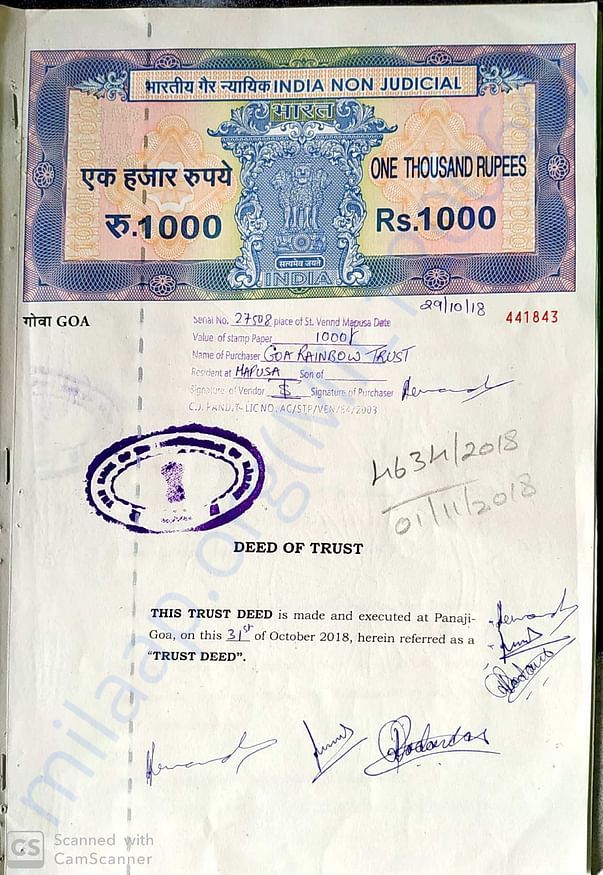 भारतीय गैर न्यायिक INDIA NON JUDICIAL
भारत
एक हजार रुपये
ONE THOUSAND RUPEES
रु.1000
Rs.1000
सत्यमेव जयते
INDIA
29/10/18
गोवा GOA
441843
Serial No. 27508 place of St. Vennd Mapusa Date
Value of stamp Paper 1000/
Name of Purchaser GOA RAINBOW TRUST
Resident at MAPUSA Son of
Signature of Vendor Signature of Purchaser
LIC NO. AC/STP/VEN/84/2003
4634/2018
01/11/2018
DEED OF TRUST
THIS TRUST DEED is made and executed at Panaji-
Goa, on this 31st of October 2018, herein referred as a
"TRUST DEED".
milaap.org
CS Scanned with
CamScanner